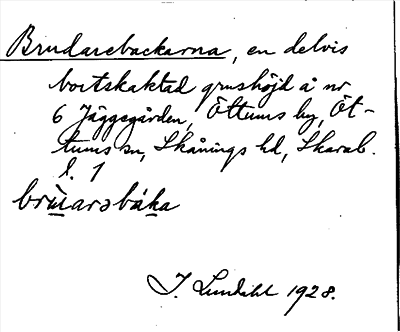 Brudarebackarna, en delvis
bortskaktad grushöjd å nr
6 Jäggegården, Öttums by, Öt-
tums sn, Skånings hd, Skarab.
l. 1
brùarəbáka
J. Lundahl 1928.